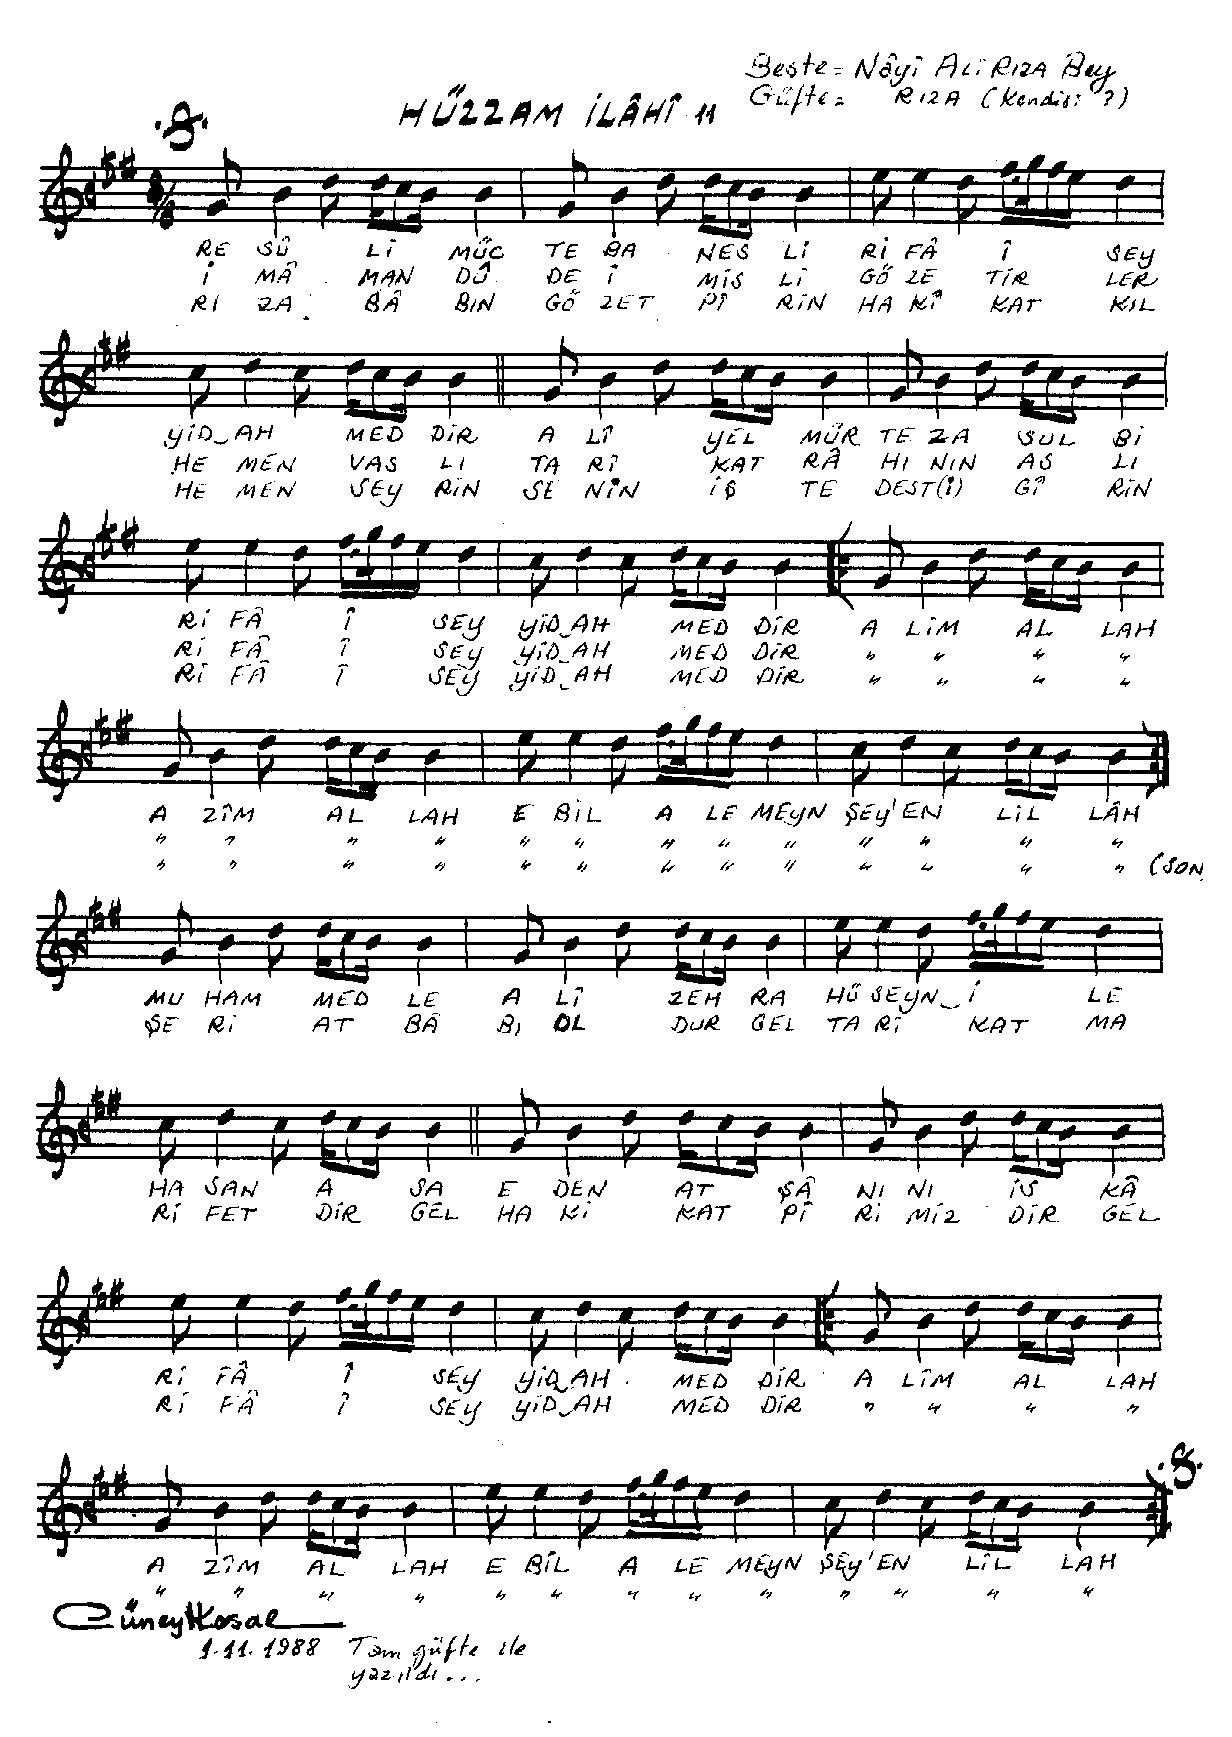 Beste = Nâyî Ali Rıza Bey
Güfte = RIZA (Kendisi ?)
HÜZZAM İLÂHÎ 11
RE SÛ Lİ MÜC TE BA NES Lİ Rİ FÂ Î SEY
İ MÂ MAN DÛ DE Î MİS Lİ GÖ ZE TİR LER
RI ZA BÂ BIN GÖ ZET PÎ RİN HA KÎ KAT KIL
YİD_AH MED DİR A LÎ YEL MÜR TE ZA SUL Bİ
HE MEN VAS LI TA RÎ KAT RÂ HI NIN AS LI
HE MEN SEY RİN SE NİN İŞ TE DEST(İ) GÎ RİN
Rİ FÂ Î SEY YİD_AH MED DİR A LİM AL LAH
Rİ FÂ Î SEY YİD_AH MED DİR " " " "
Rİ FÂ Î SEY YİD_AH MED DİR " " " "
A ZÎM AL LAH E BİL A LE MEYN ŞEY'EN LİL LÂH
" " " " " " " " " " " " "
" " " " " " " " " " " " " (SON
MU HAM MED LE A LÎ ZEH RA HÜ SEYN_İ LE
ŞE RÎ AT BÂ BI OL DUR GEL TA RÎ KAT MA
HA SAN A SA E DEN AT ŞÂ NI NI İS KÂ
Rİ FET DİR GEL HA Kİ KAT PÎ Rİ MİZ DİR GEL
Rİ FÂ Î SEY YİD_AH MED DİR A LÎM AL LAH
Rİ FÂ Î SEY YİD_AH MED DİR " " " "
A ZÎM AL LAH E BİL A LE MEYN ŞEY'EN LİL LAH
" " " " " " " " " " " " "
Güney Kosal
1.11.1988 Tam güfte ile
yazıldı...